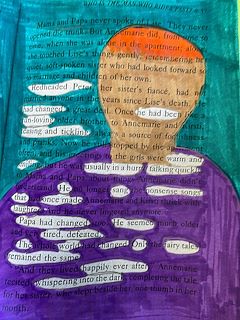 Mama and Papa never spoke of Lise. They never
opened the trunk. But Annemarie did, from time to
time, when she was alone in the apartment; alone
she touched Lise's things gently, remembering her
quiet, soft-spoken sister who had looked forward so
to marriage and children of her own.
Redheaded Peter, her sister's fiancé, had not
married anyone in the years since Lise's death. He
had changed a great deal. he had been
fun-loving older brother to Annemarie and Kirsti,
teasing and tickling, always a source of foolishness
and pranks. Now he still stopped by the apartment
often, and his greetings to the girls were warm and
but he was usually in a hurry, talking quickly
Mama and Papa about things Annemarie didn't
understand. He no longer sang the nonsense songs
that had once made Annemarie and Kirsti shriek with
laughter. And he never lingered anymore.
Papa had changed, too. He seemed much older
and very tired, defeated.
The whole world had changed. Only the fairy tales
remained the same.
"And they lived happily ever after," Annemarie
whispering into the dark, completing the tale
for her sister, who slept beside her, one thumb in her
mouth.